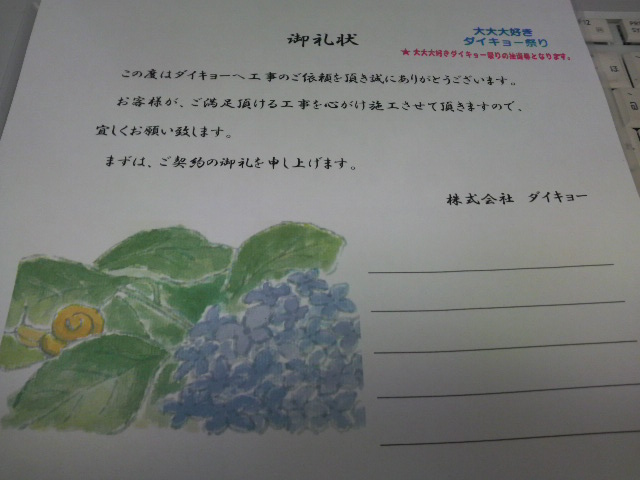 御礼状
大大大好き
ダイキョー祭り
★大大大好きダイキョー祭りの抽選券となります。
この度はダイキョーへ工事のご依頼を頂き誠にありがとうございます。
お客様が、ご満足頂ける工事を心がけ施工させて頂きますので、
宜しくお願い致します。
まずは、ご契約の御礼を申し上げます。
株式会社 ダイキョー